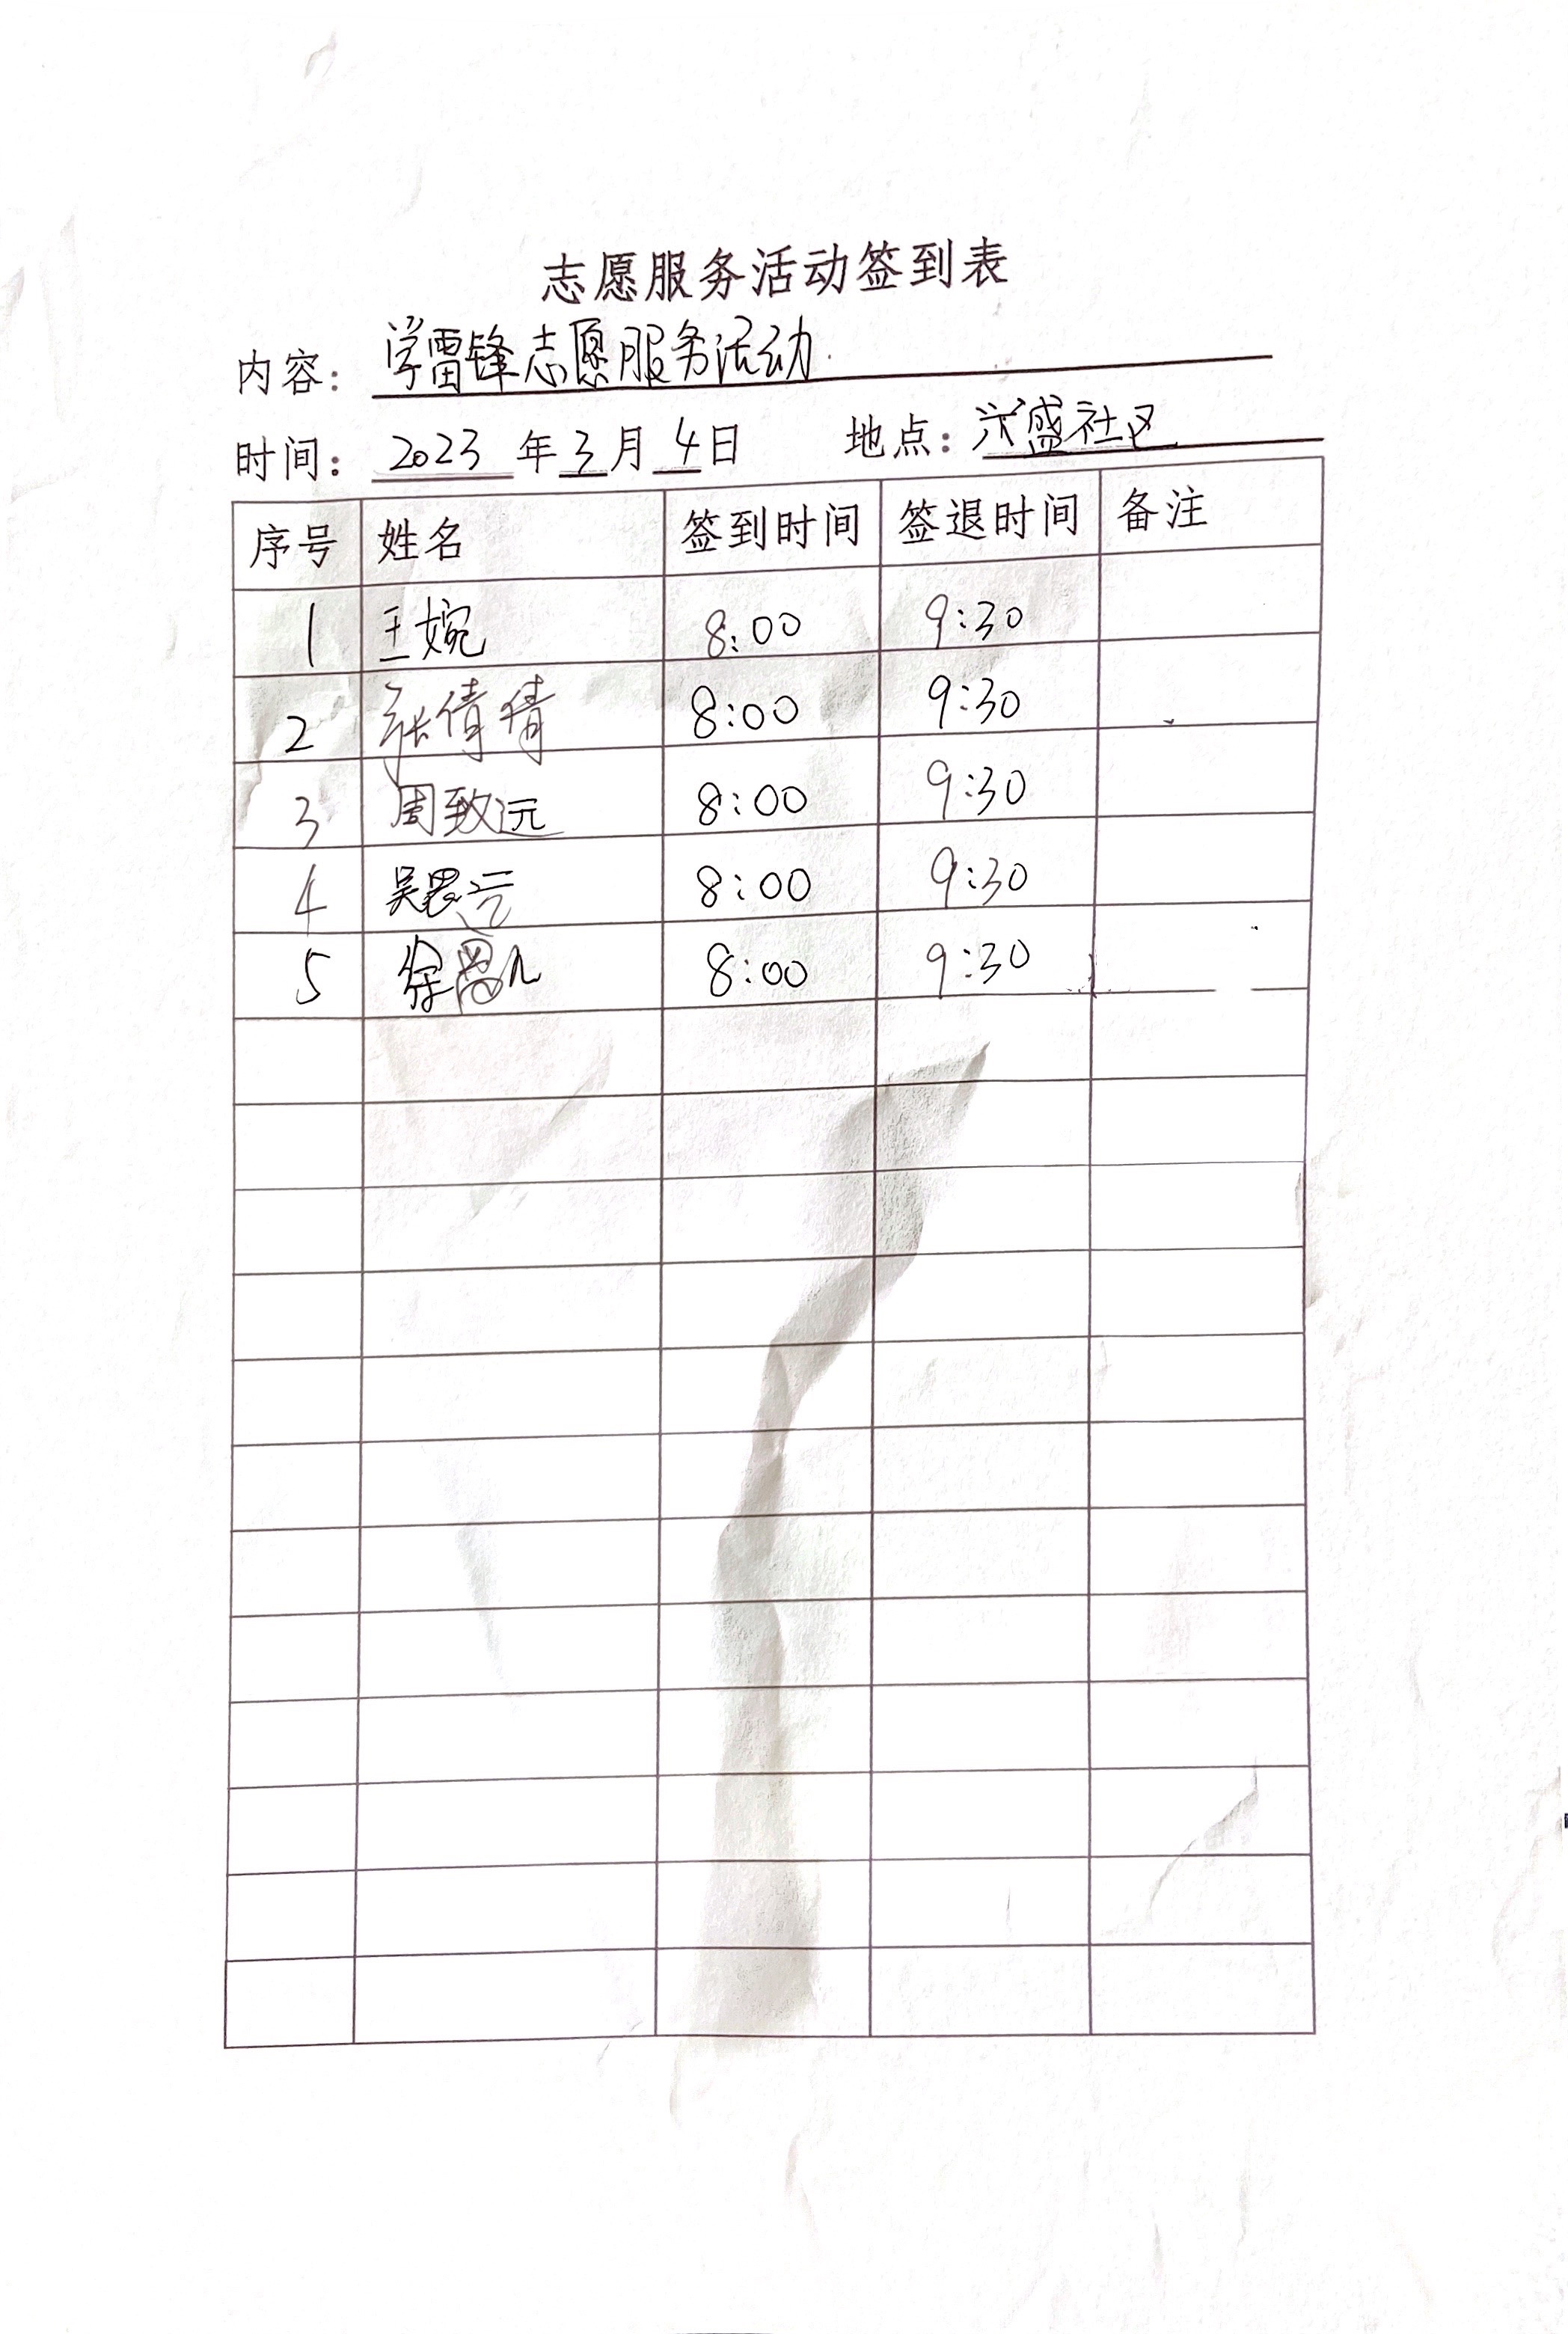 志愿服务活动签到表
内容：学雷锋志愿服务活动
时间：2023年3月4日 地点：兴盛社区
序号 姓名 签到时间 签退时间 备注
1 王婉 8:00 9:30
2 张倩倩 8:00 9:30
3 周致远 8:00 9:30
4 吴思远 8:00 9:30
5 徐 8:00 9:30